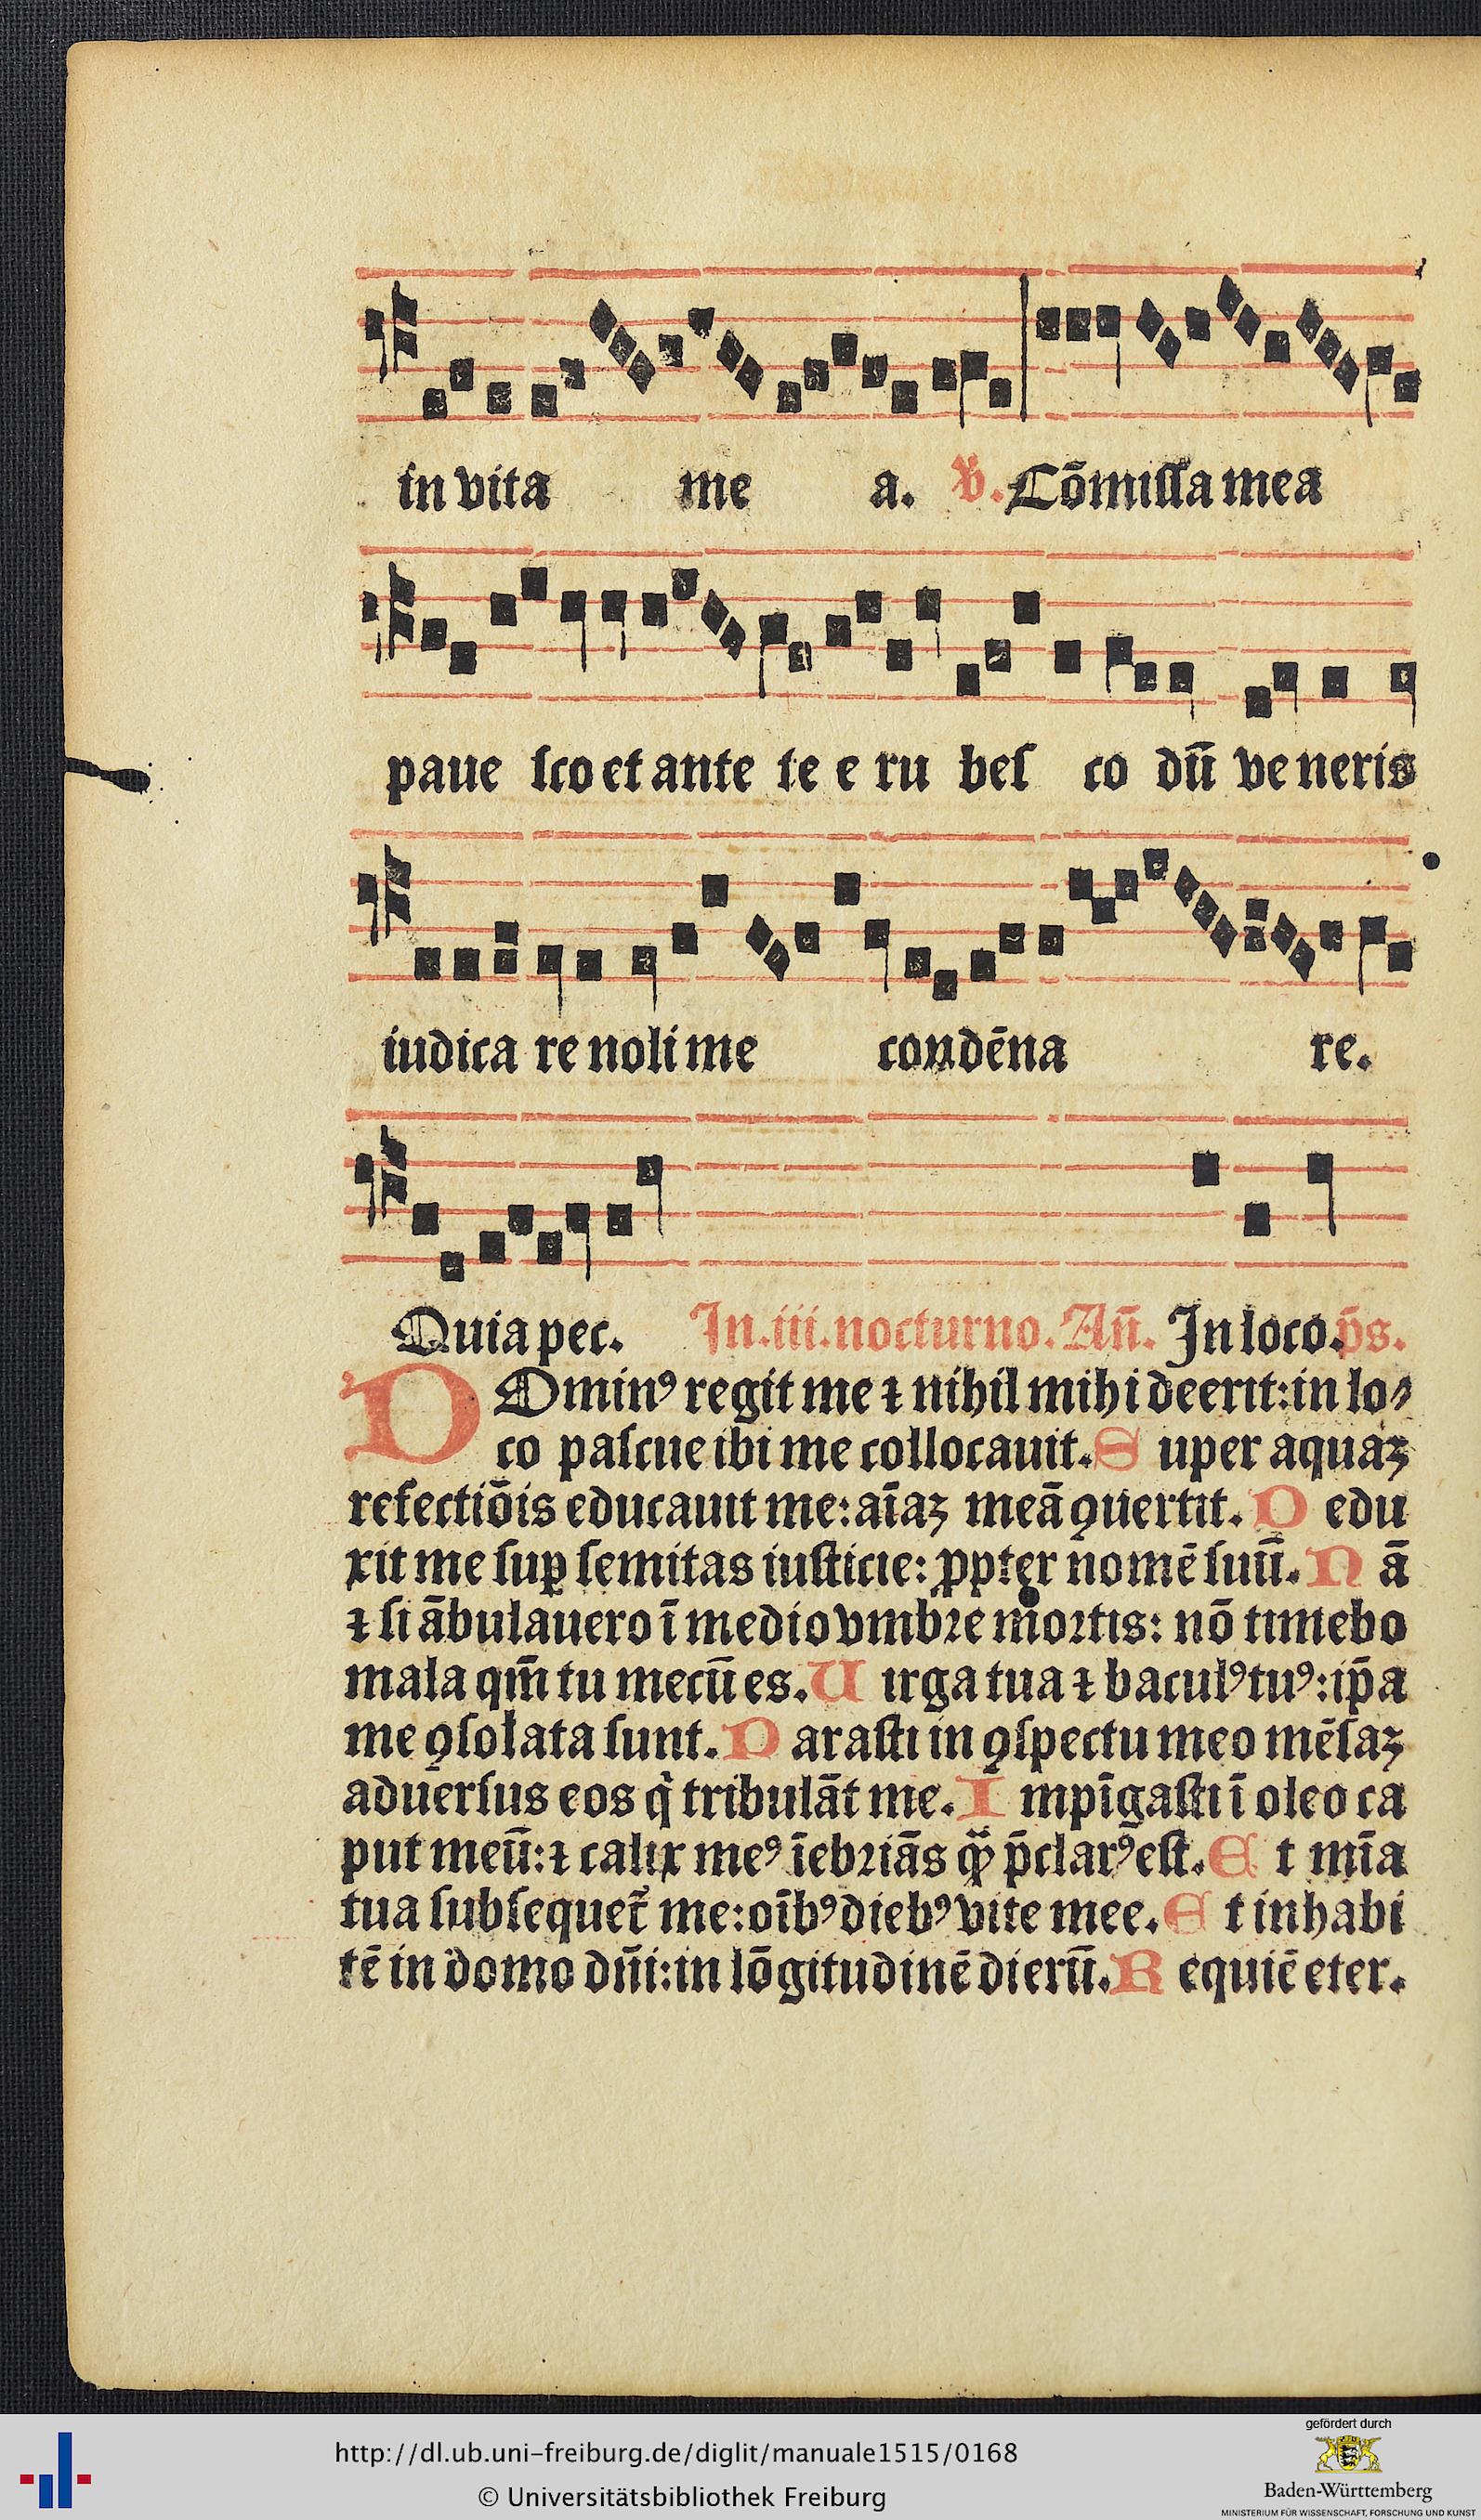 in vita me a. ℣. Cõmiſſa mea
paue ſco et ante te e ru beſ co dū ve neris
iudica re noli me condēna re.
Quia pec. In .iii. nocturno. Añ. In loco. p̄s.
DOminꝰ regit me ⁊ nihil mihi deerit: in lo⸗
co paſcue ibi me collocauit. S uper aquaꝫ
refectiōis educauit me: aīaꝫ meā ꝯuertit. D edu
xit me ſuꝑ ſemitas iuſticie: ꝓpter nomē ſuū. N ā
⁊ ſi ābulauero ī medio vmbꝛe moꝛtis: nō timebo
mala qm̄ tu mecū es. U irga tua ⁊ baculꝰ tuꝰ: ip̄a
me ꝯſolata ſunt. P araſti in ꝯſpectu meo mēſaꝫ
aduerſus eos q̇ tribulāt me. I mpīgaſti ī oleo ca
put meū: ⁊ calix meꝰ īebꝛiās q̃ꝫ p̄clarꝰ eſt. E t mīa
tua ſubſequet̃ me: oībꝰ diebꝰ vite mee. E t inhabi
tē in domo dn̄i: in lōgitudinē dierū. R equiē eter.
http://dl.ub.uni-freiburg.de/diglit/manuale1515/0168
© Universitätsbibliothek Freiburg
gefördert durch
Baden-Württemberg
MINISTERIUM FÜR WISSENSCHAFT, FORSCHUNG UND KUNST